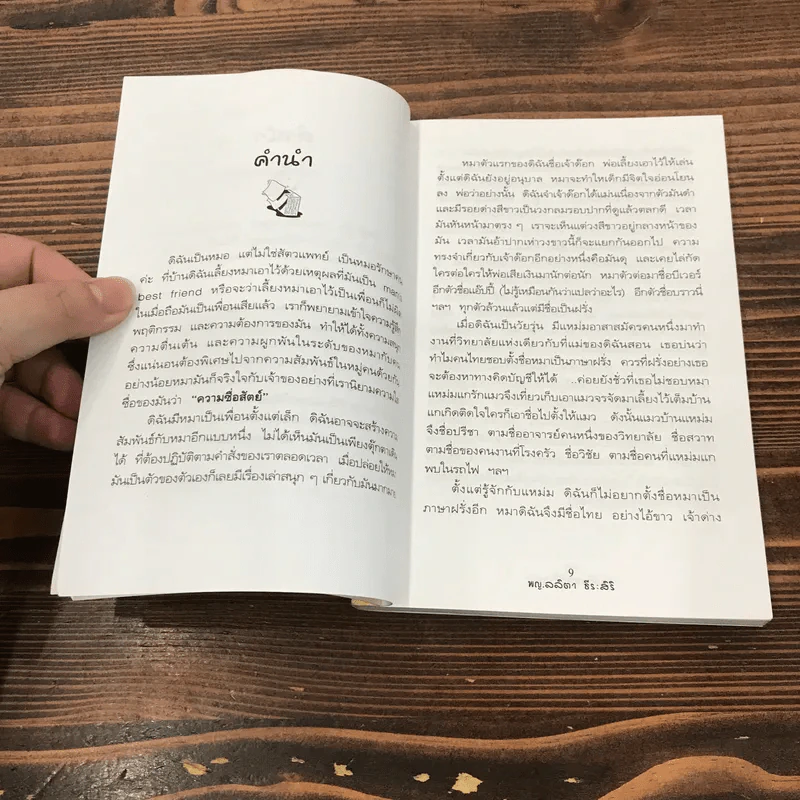 คำนำ
ดิฉันเป็นหมอ แต่ไม่ใช่สัตวแพทย์ เป็นหมอรักษาคน
ค่ะ ที่บ้านดิฉันเลี้ยงหมาเอาไว้ด้วยเหตุผลที่มันเป็น man's
best friend หรือจะว่าเลี้ยงหมาเอาไว้เป็นเพื่อนก็ไม่ผิด
ในเมื่อถือมันเป็นเพื่อนเสียแล้ว เราก็พยายามเข้าใจความรู้สึก
พฤติกรรม และความต้องการของมัน ทำให้ได้ทั้งความสนุก
ความตื่นเต้น และความผูกพันในระดับของหมากับคน
ซึ่งแน่นอนต้องพิเศษไปจากความสัมพันธ์ในหมู่คนด้วยกัน
อย่างน้อยหมามันก็จริงใจกับเจ้าของอย่างที่เรานิยามความ
ชื่อของมันว่า "ความซื่อสัตย์"
ดิฉันมีหมาเป็นเพื่อนตั้งแต่เล็ก ดิฉันอาจจะสร้างความ
สัมพันธ์กับหมาอีกแบบหนึ่ง ไม่ได้เห็นมันเป็นเพียงตุ๊กตาเดิน
ได้ ที่ต้องปฏิบัติตามคำสั่งของเราตลอดเวลา เมื่อปล่อยให้หมา
มันเป็นตัวของตัวเองก็เลยมีเรื่องเล่าสนุก ๆ เกี่ยวกับมันมากมาย
หมาตัวแรกของดิฉันชื่อเจ้าด๊อก พ่อเลี้ยงเอาไว้ให้เล่น
ตั้งแต่ดิฉันยังอยู่อนุบาล หมาจะทำให้เด็กมีจิตใจอ่อนโยน
ลง พ่อว่าอย่างนั้น ดิฉันจำเจ้าด๊อกได้แม่นเนื่องจากตัวมันดำ
และมีรอยด่างสีขาวเป็นวงกลมรอบปากที่ดูแล้วตลกดี เวลา
มันหันหน้ามาตรง ๆ เราจะเห็นแต่วงสีขาวอยู่กลางหน้าของ
มัน เวลามันอ้าปากเห่าวงขาวนี้ก็จะแยกกันออกไป ความ
ทรงจำเกี่ยวกับเจ้าด๊อกอีกอย่างหนึ่งคือมันดุ และเคยไล่กัด
ใครต่อใครให้พ่อเสียเงินมานักต่อนัก หมาตัวต่อมาชื่อบีเวอร์
อีกตัวชื่อแอ๊บปี้ (ไม่รู้เหมือนกันว่าแปลว่าอะไร) อีกตัวชื่อบราวนี่
ฯลฯ ทุกตัวล้วนแล้วแต่มีชื่อเป็นฝรั่ง
เมื่อดิฉันเป็นวัยรุ่น มีแหม่มอาสาสมัครคนหนึ่งมาทำ
งานที่วิทยาลัยแห่งเดียวกับที่แม่ของดิฉันสอน เธอบ่นว่า
ทำไมคนไทยชอบตั้งชื่อหมาเป็นภาษาฝรั่ง ควรที่ฝรั่งอย่างเธอ
จะต้องหาทางคิดบัญชีให้ได้ ..ค่อยยังชั่วที่เธอไม่ชอบหมา
แหม่มแกรักแมวจึงเที่ยวเก็บเอาแมวจรจัดมาเลี้ยงไว้เต็มบ้าน
แกเกิดติดใจใครก็เอาชื่อไปตั้งให้แมว ดังนั้นแมวบ้านแหม่ม
จึงชื่อปรีชา ตามชื่ออาจารย์คนหนึ่งของวิทยาลัย ชื่อสวาท
ตามชื่อของคนงานที่โรงครัว ชื่อวิชัย ตามชื่อคนที่แหม่มแก
พบในรถไฟ ฯลฯ
ตั้งแต่รู้จักกับแหม่ม ดิฉันก็ไม่อยากตั้งชื่อหมาเป็น
ภาษาฝรั่งอีก หมาดิฉันจึงมีชื่อไทย อย่างไอ้ขาว เจ้าด่าง
9
พญ.ลลิตา ธีระสิริ